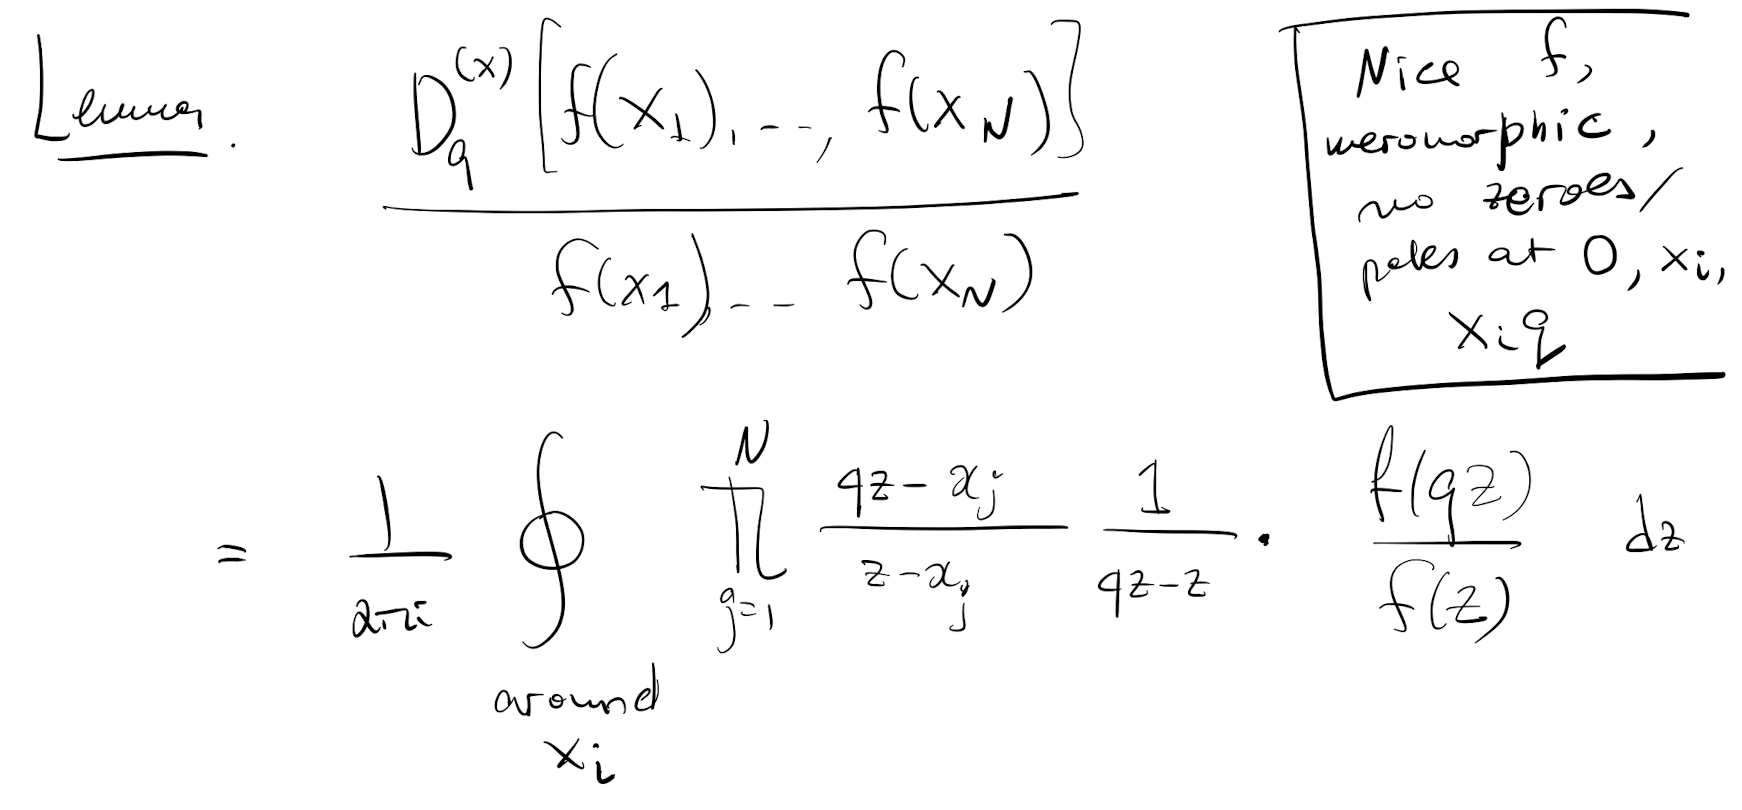 Lemma. D_q^{(x)} [f(x_1), ..., f(x_N)]
f(x_1), ... f(x_N)
Nice f,
meromorphic,
no zeroes/
poles at 0, x_i,
x_i q
= \frac{1}{2πi} \oint_{around x_i} \prod_{j=1}^{N} \frac{qz - x_j}{z - x_j} \frac{1}{qz - z} · \frac{f(qz)}{f(z)} dz